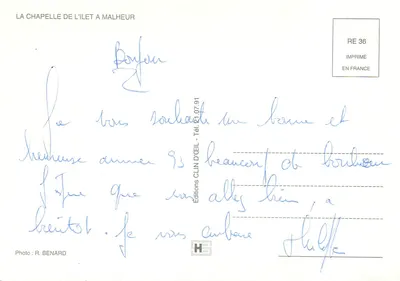 LA CHAPELLE DE L'ILET A MALHEUR
RE 36
IMPRIMÉ
EN FRANCE
Bonjour
Je vous souhaite une bonne et
heureuse année 93 beaucoup de bonheur
J'espère que vous allez bien, a
bientôt. Je vous embrasse
Editions CLIN D'ŒIL - Tél. 21.67.91
Photo : R. BENARD
H